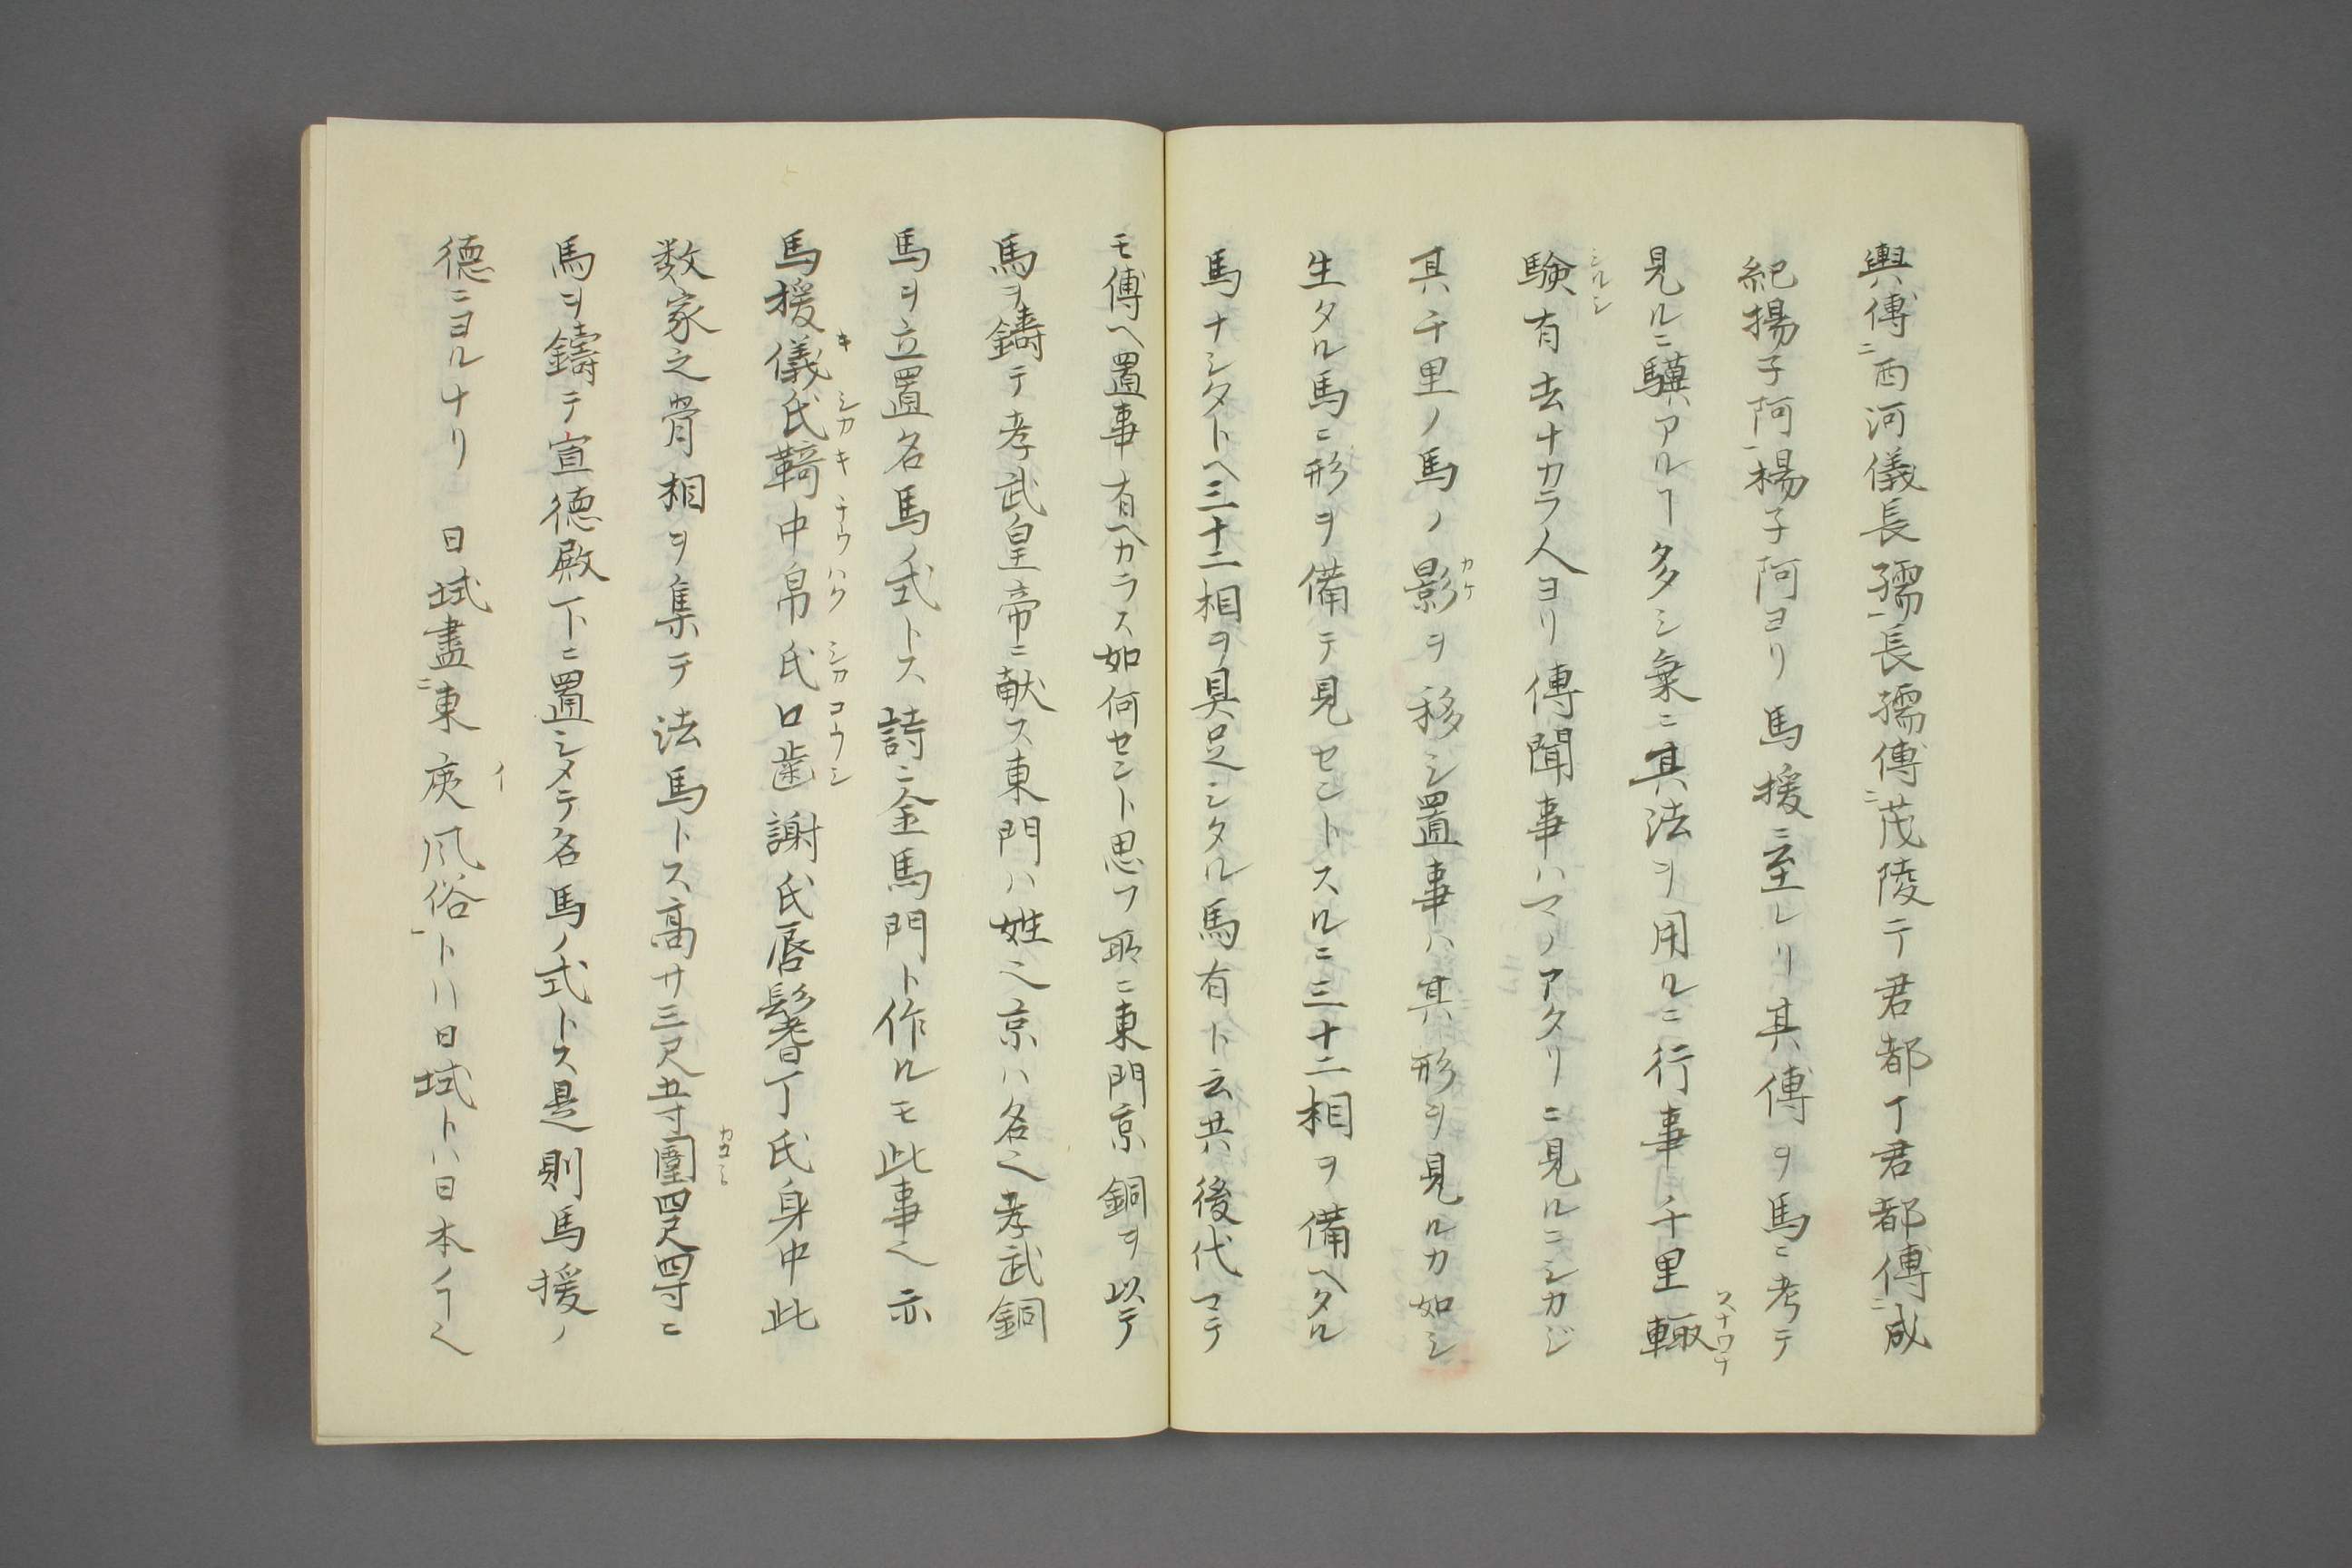 輿傳ニ西河儀長孺一長孺傳ニ茂陵テ君都丁君都傳ニ成
紀揚子阿一楊子阿ヨリ馬援ニ至レリ其傳ヲ馬ニ考テ
見ルニ驥ハアルヿ多シ兼ニ其法ヲ用ルニ行事千里輙スナワチ
験シルシ有去ナカラ人ヨリ傳聞事ハマノアタリニ見ルニシカジ
其千里ノ馬ノ影カケヲ移シ置事ハ其形ヲ見ルカ如シ
生タル馬ニ形ヲ備テ見セントスルニ三十二相ヲ備ヘタル
馬ナシタトヘ三十二相ヲ具足シタル馬有ト云共後代マテ
モ傳ヘ置事有ヘカラス如何セント思フ所ニ東門京銅ヲ以テ
馬ヲ鑄テ孝武皇帝ニ献ス東門ハ姓之京ハ名之孝武銅
馬ヲ立置名馬ノ式トス詩ニ金馬門ト作ルモ此事之亦
馬援儀キ氏シカ鞯キ中チウ帛ハク氏シカ口コウ歯シ謝氏唇髻丁氏身中此
数家之骨相ヲ集テ法馬トス高サ三尺五寸圍カコミ四尺四寸ニ
馬ヲ鑄テ宣徳殿下ニ置シメテ名馬ノ式トス是則馬援ノ
徳ニヨルナリ 日域盡ニ東夷イ風俗一トハ日域トハ日本ノヿ之